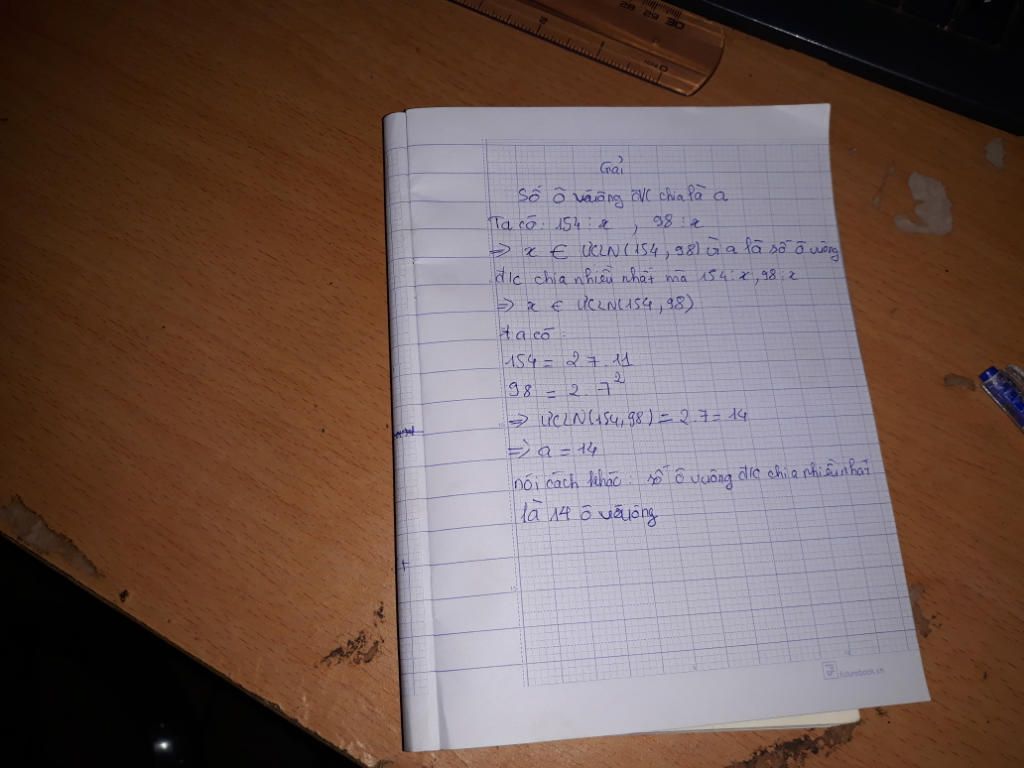 28 29 30
Giải
Số ô vuông đc chia là a
Ta có: 154 : x , 98 : x
=> x ∈ ƯCLN(154, 98) a là số ô vuông
đc chia nhiều nhất mà 154 : x, 98 : x
=> x ∈ ƯCLN(154, 98)
ta có:
154 = 2 7. 11
98 = 2. 7²
=> ƯCLN(154, 98) = 2. 7 = 14
=> a = 14
nói cách khác: số ô vuông đc chia nhiều nhất
là 14 ô vuông